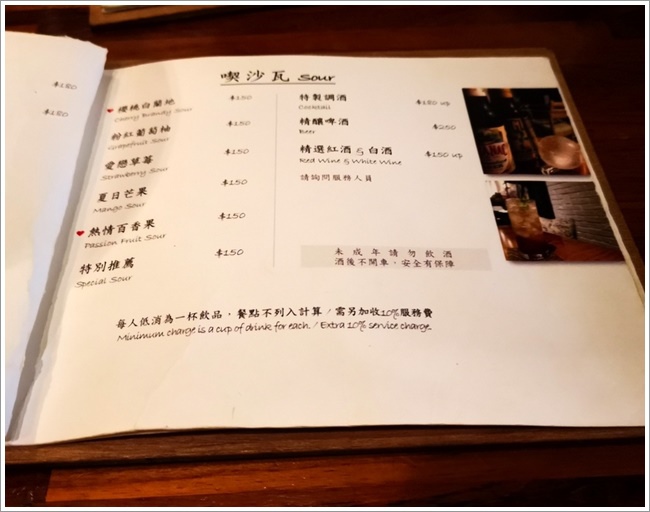 $180
$180
喫沙瓦 Sour
櫻桃白蘭地 $150
Cherry Brandy Sour
粉紅葡萄柚 $150
Grapefruit Sour
愛戀草莓 $150
Strawberry Sour
夏日芒果 $150
Mango Sour
熱情百香果 $150
Passion Fruit Sour
特別推薦 $150
Special Sour
特製調酒 $180 up
Cocktail
精釀啤酒 $250
Beer
精選紅酒 & 白酒 $150 up
Red Wine & White Wine
請詢問服務人員
未成年請勿飲酒
酒後不開車，安全有保障
每人低消為一杯飲品，餐點不列入計算 / 需另加收10%服務費
Minimum charge is a cup of drink for each. / Extra 10% service charge.